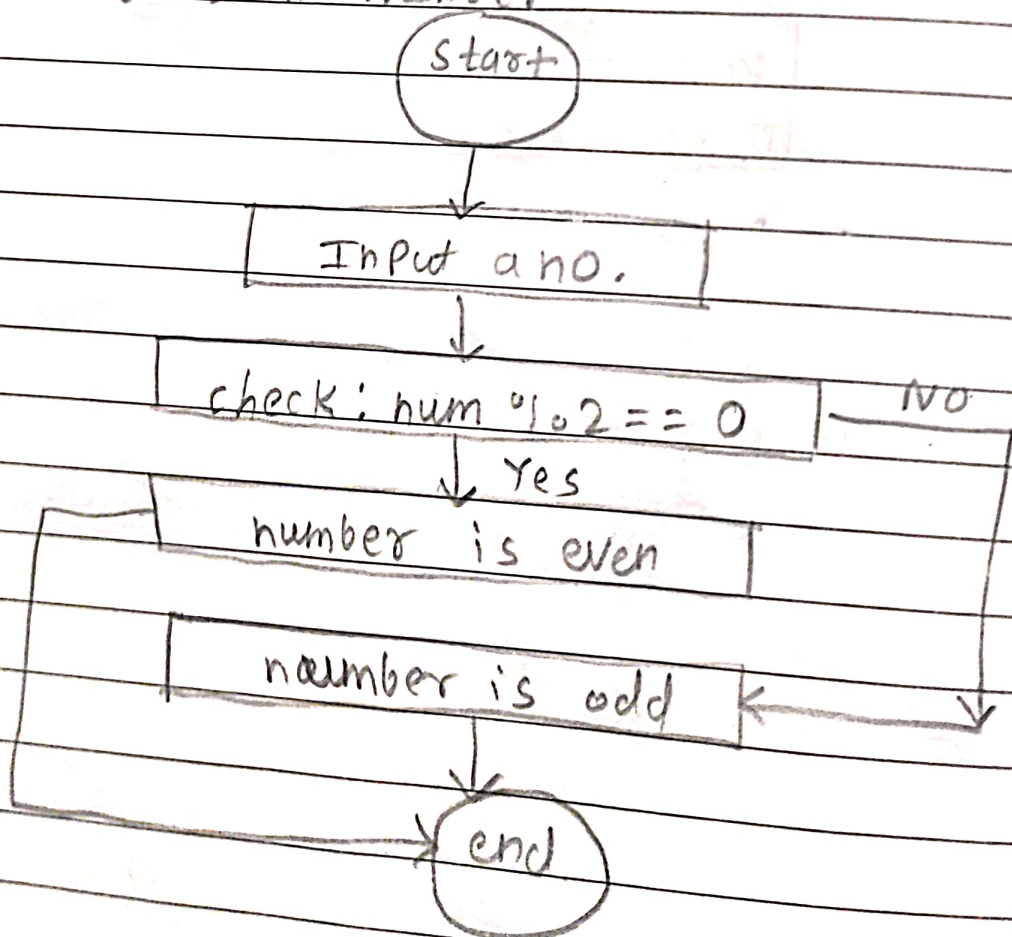 start
Input a no.
check: num % 2 == 0
No
Yes
number is even
number is odd
end